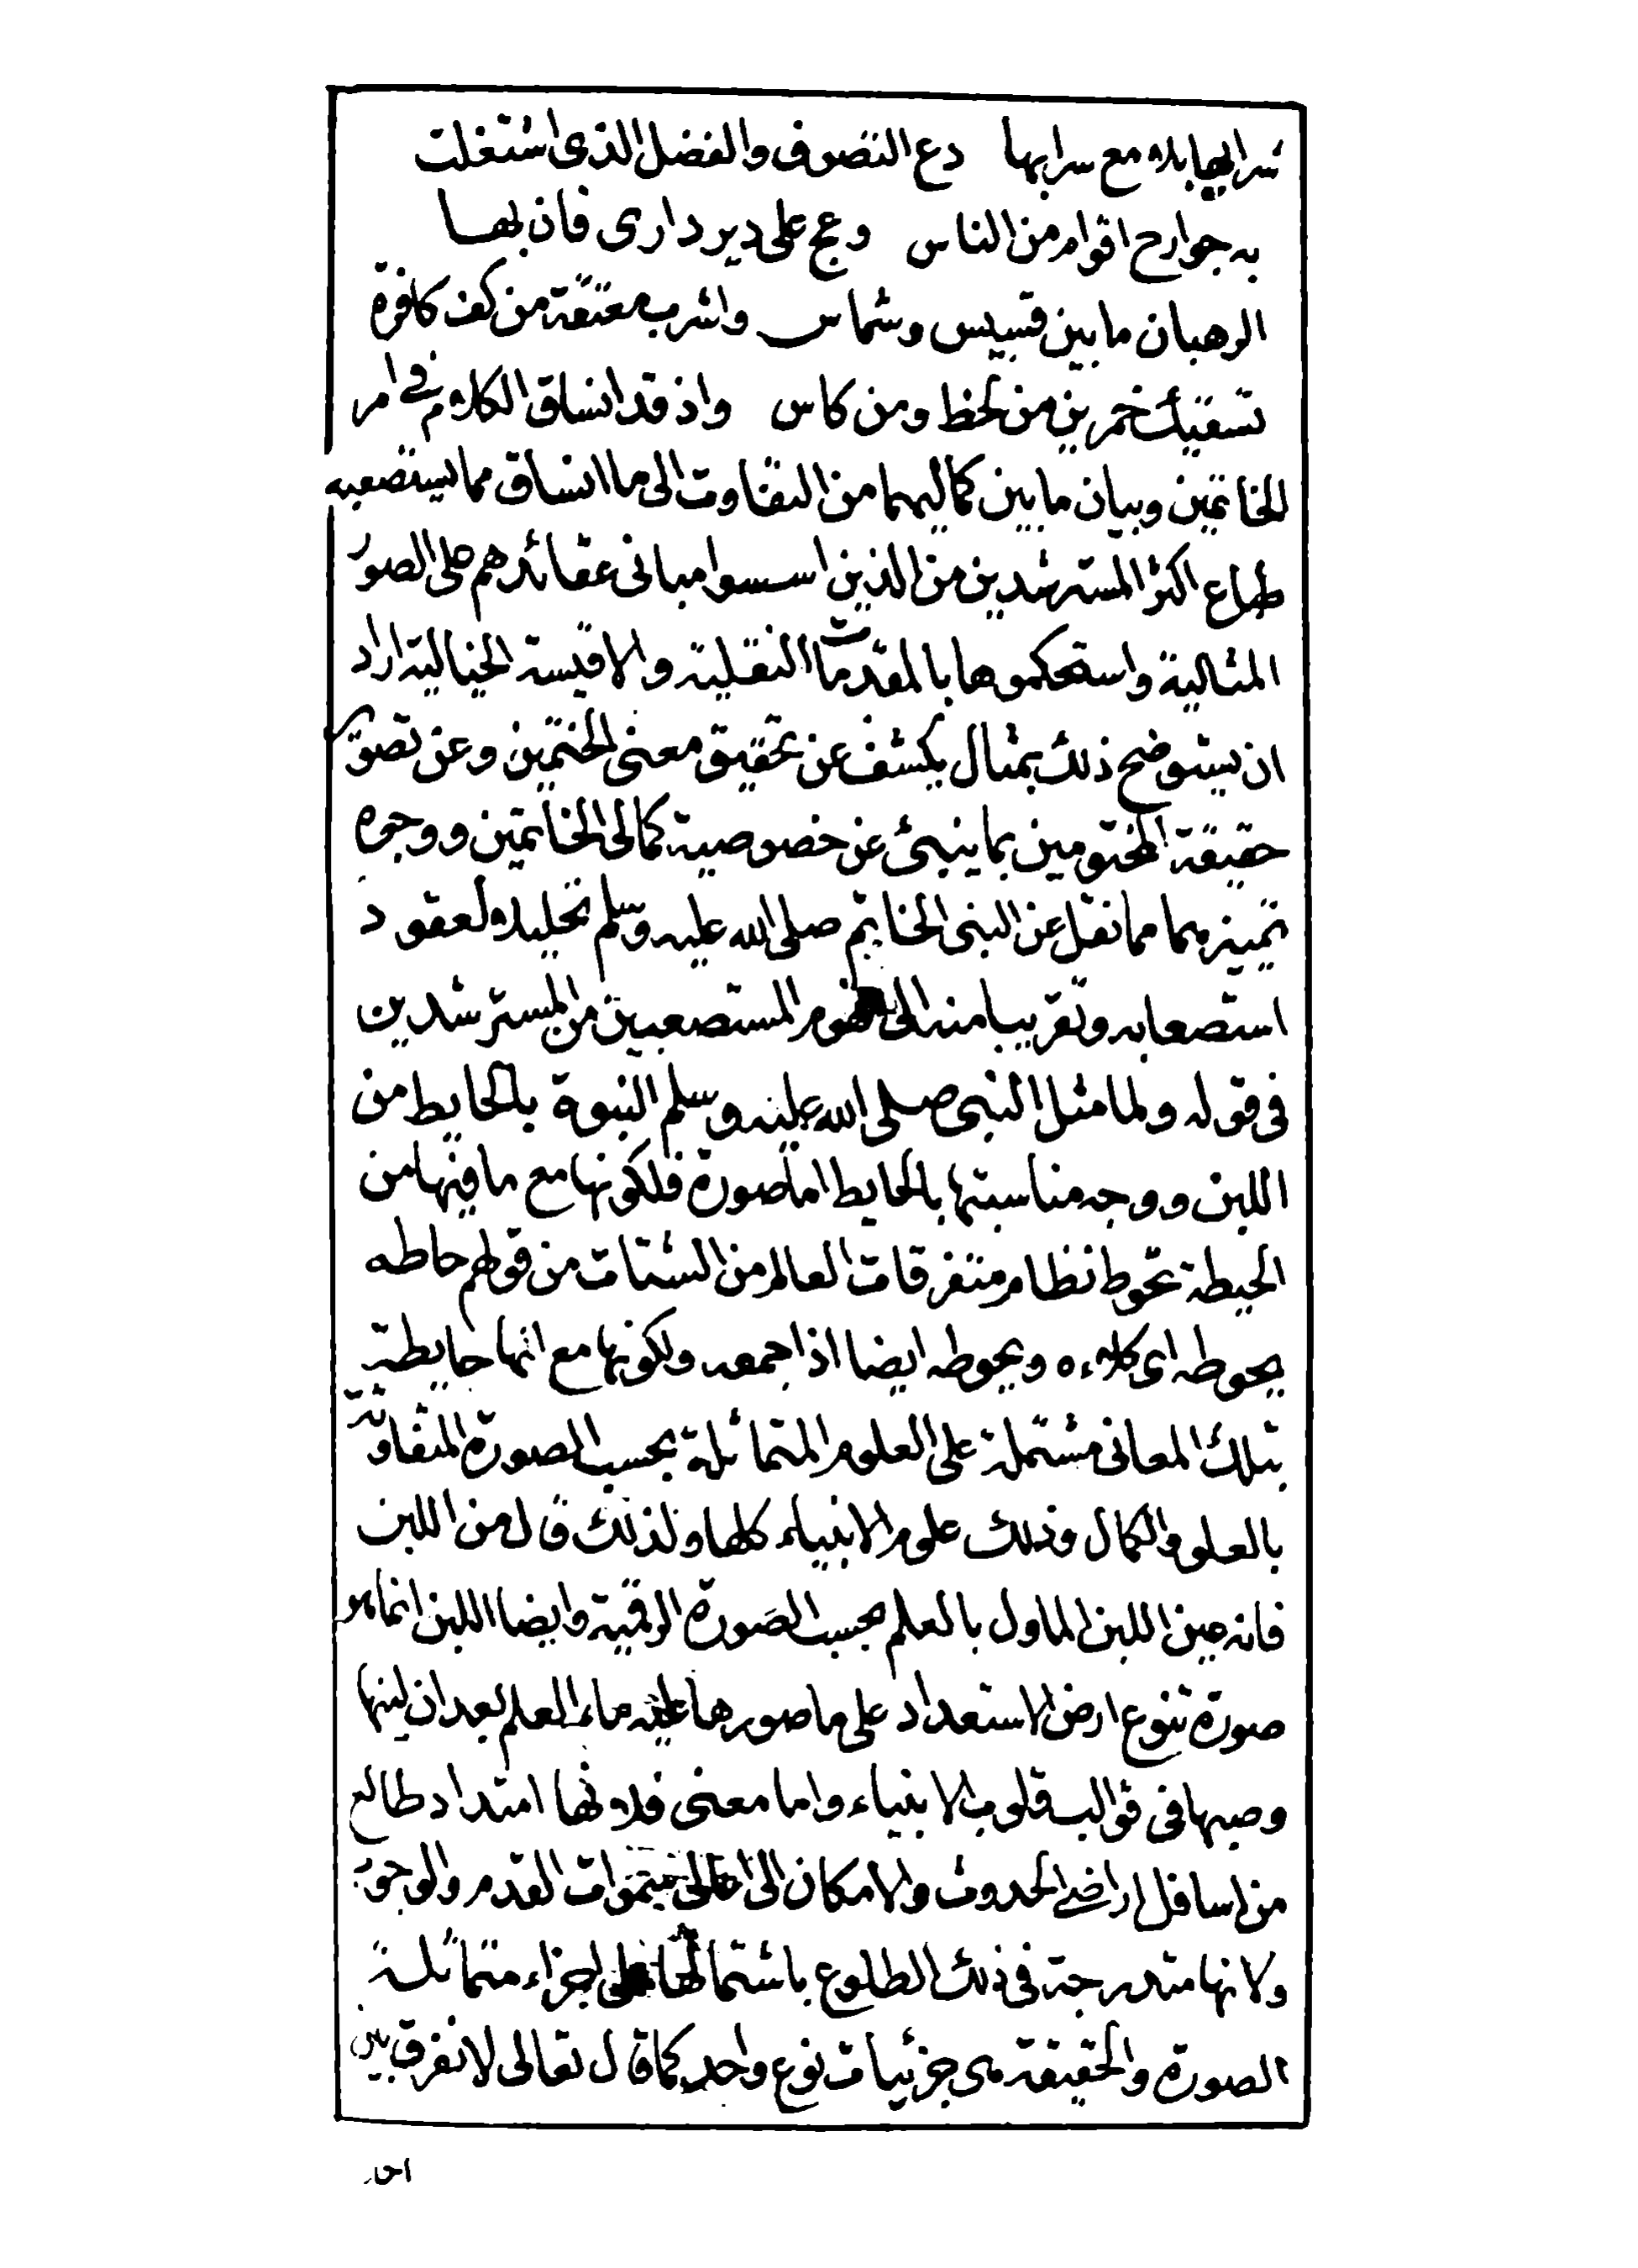 شرابها بلا مع سرابها دع التصوف والفضل الذى اشتغلت
به جوارح اقوام من الناس وعج على دير دارى فان بها
الرهبان ما بين قسيس وشماس واشرب معتقة من كف كافرة
تسقيك خمرين من لحظ ومن كاس واذ قد انساق الكلام فى امر
الخاتمين وبيان ما بين كماليهما من التفاوت الى ما انساق مما يستصعبه
طباع اكثر المسترشدين من الذين اسسوا مبانى عقائدهم على الصور
المثالية واستحكموها بالمقدمات النقلية والاقيسة الخيالية اراد
ان يستوضح ذلك بمثال يكشف عن تحقيق معنى الختمين وعن تصوير
حقيقة المختومين بما ينبئ عن خصوصية كمالى الخاتمين ووجوه
تميزهما مما نقل عن النبى الخاتم صلى الله عليه وسلم تحليلا لعقود
استصعابه وتقريبا منه الى فهوم المستصعبين من المسترشدين
فى قوله ولما مثل النبى صلى الله عليه وسلم النبوة بالحايط من
اللبن ووجه مناسبتها بالحايط اما صورة فلكونها مع ما فيها من
الحيطة تحوط نظام متفرقات العالم من الشتات من قولهم حاطه
يحوطه اى كلاءه ويحوطه ايضا اذا جمعه ولكونها مع انها حايطة
بتلك المعانى مشتملة على العلوم المتماثلة بحسب الصورة المتفاوتة
بالعلو والكمال وذلك علوم الانبياء كلها ولذلك قال من اللبن
فانه عين اللبن الماول بالعلم بحسب الصورة الرقمية وايضا اللبن انما هو
صورة تنوع ارض الاستعداد على ما صورها عليه ماء العلم بعد ان لينها
وصبها فى قوالب قلوب الانبياء واما معنى فلانها امتداد طالع
من اسافل اراضى الحدوث والامكان الى اعالى سموات القدم والوجوب
ولانها متدرجة فى ذلك الطلوع باشتمالها على اجزاء متماثلة
الصورة والحقيقة هى جزئيات نوع واحد كما قال تعالى لا نفرق بين
احد